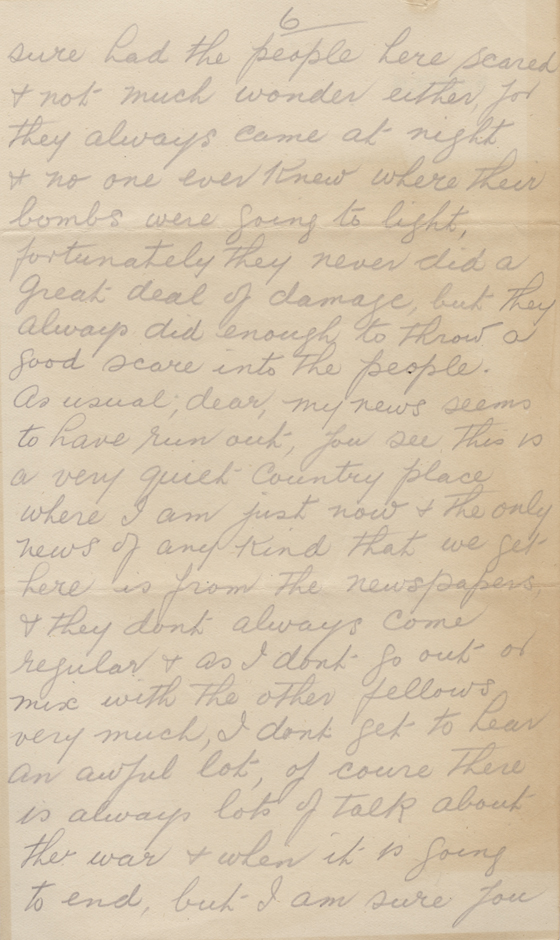 6
sure had the people here scared
& not much wonder either, for
they always came at night
& no one ever knew where their
bombs were going to light,
fortunately they never did a
great deal of damage, but they
always did enough to throw a
good scare into the people.
As usual, dear, my news seems
to have run out, you see this is
a very quiet country place
where I am just now & the only
news of any kind that we get
here is from the newspapers,
& they dont always come
regular & as I dont go out or
mix with the other fellows
very much, I dont get to hear
an awful lot, of coure there
is always lots of talk about
the war & when it is going
to end, but I am sure you